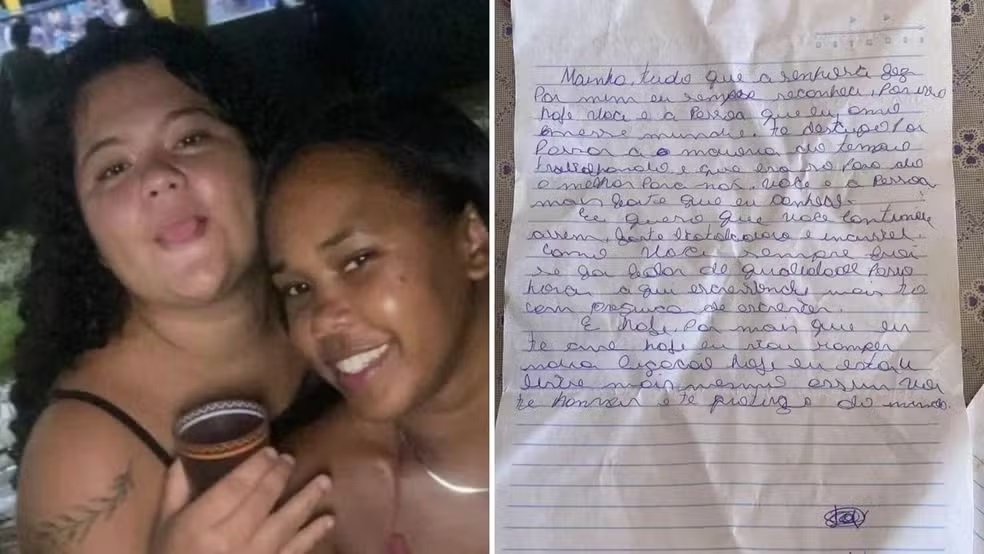 Mainha, tudo que a senhora fez
Por mim eu sempre reconheci, Por isso
hoje você e a Pessoa que eu amo
nesse mundo. te desculpe Por
Passar a maioria do tempo
trabalhando e que era so Para da
o melhor Para nos. Você e a Pessoa
mais forte que eu conheci.
Eu quero que você continue
assim, forte trabalhadora e incrivel
como você sempre foi
qualidade
hora a que escrevendo mais to
com preguiça de escrever.
E hoje, Por mais que eu
te ame hoje eu vou romper
nossa ligação hoje eu estou
livre mais mesmo assim vou
te honrar e te proteger do mundo.